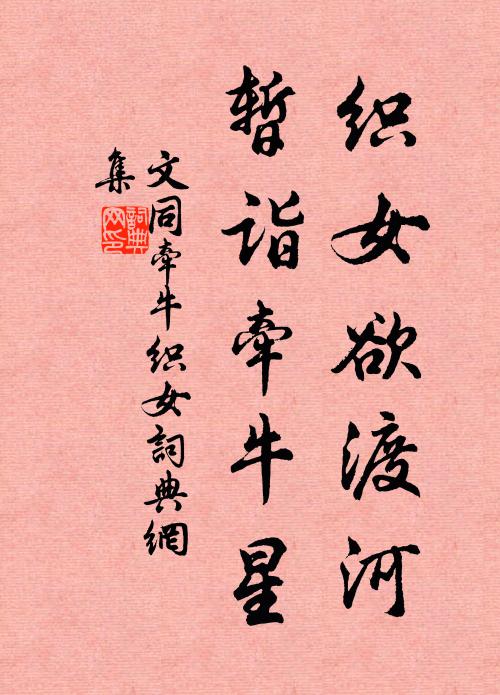 织女欲渡河
暂诣牵牛星
文同牵牛织女詞典網
集
詞典
网印